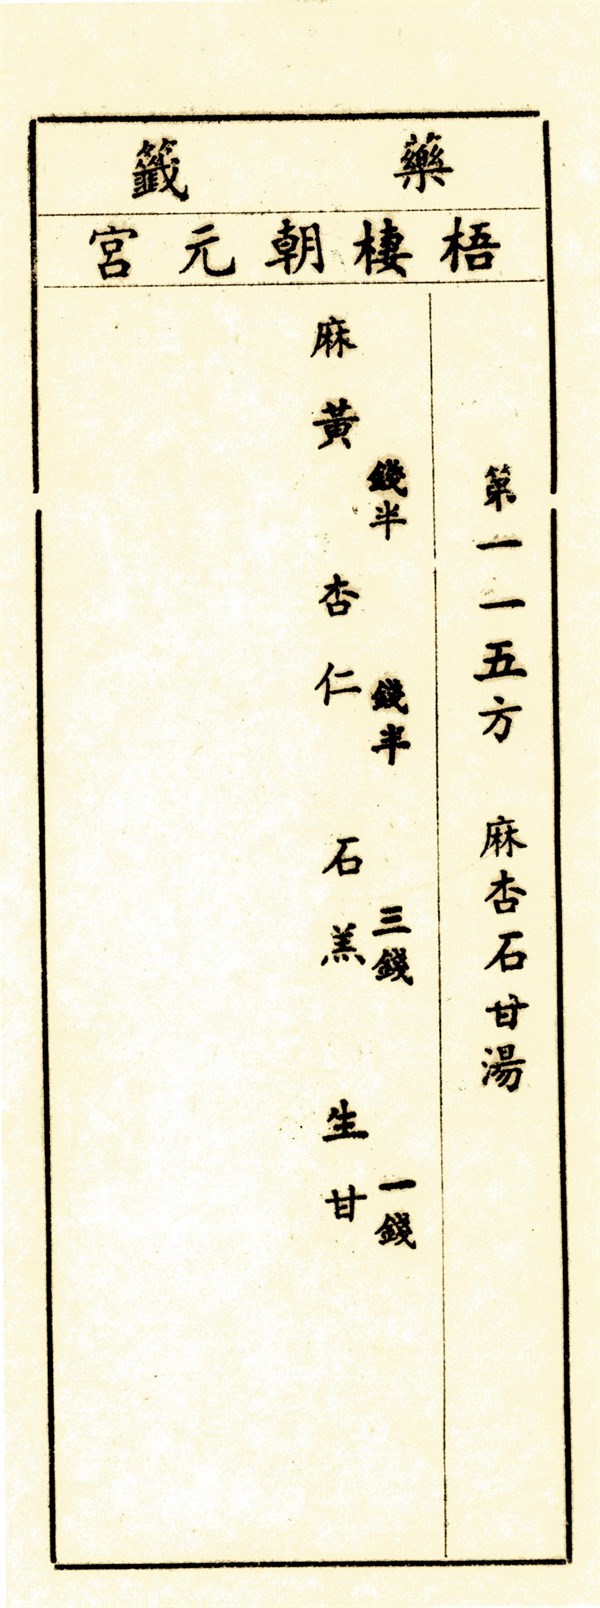 藥籤
梧棲朝元宮
第一一五方 麻杏石甘湯
麻黃 錢半 杏仁 錢半 石羔 三錢 生甘 一錢